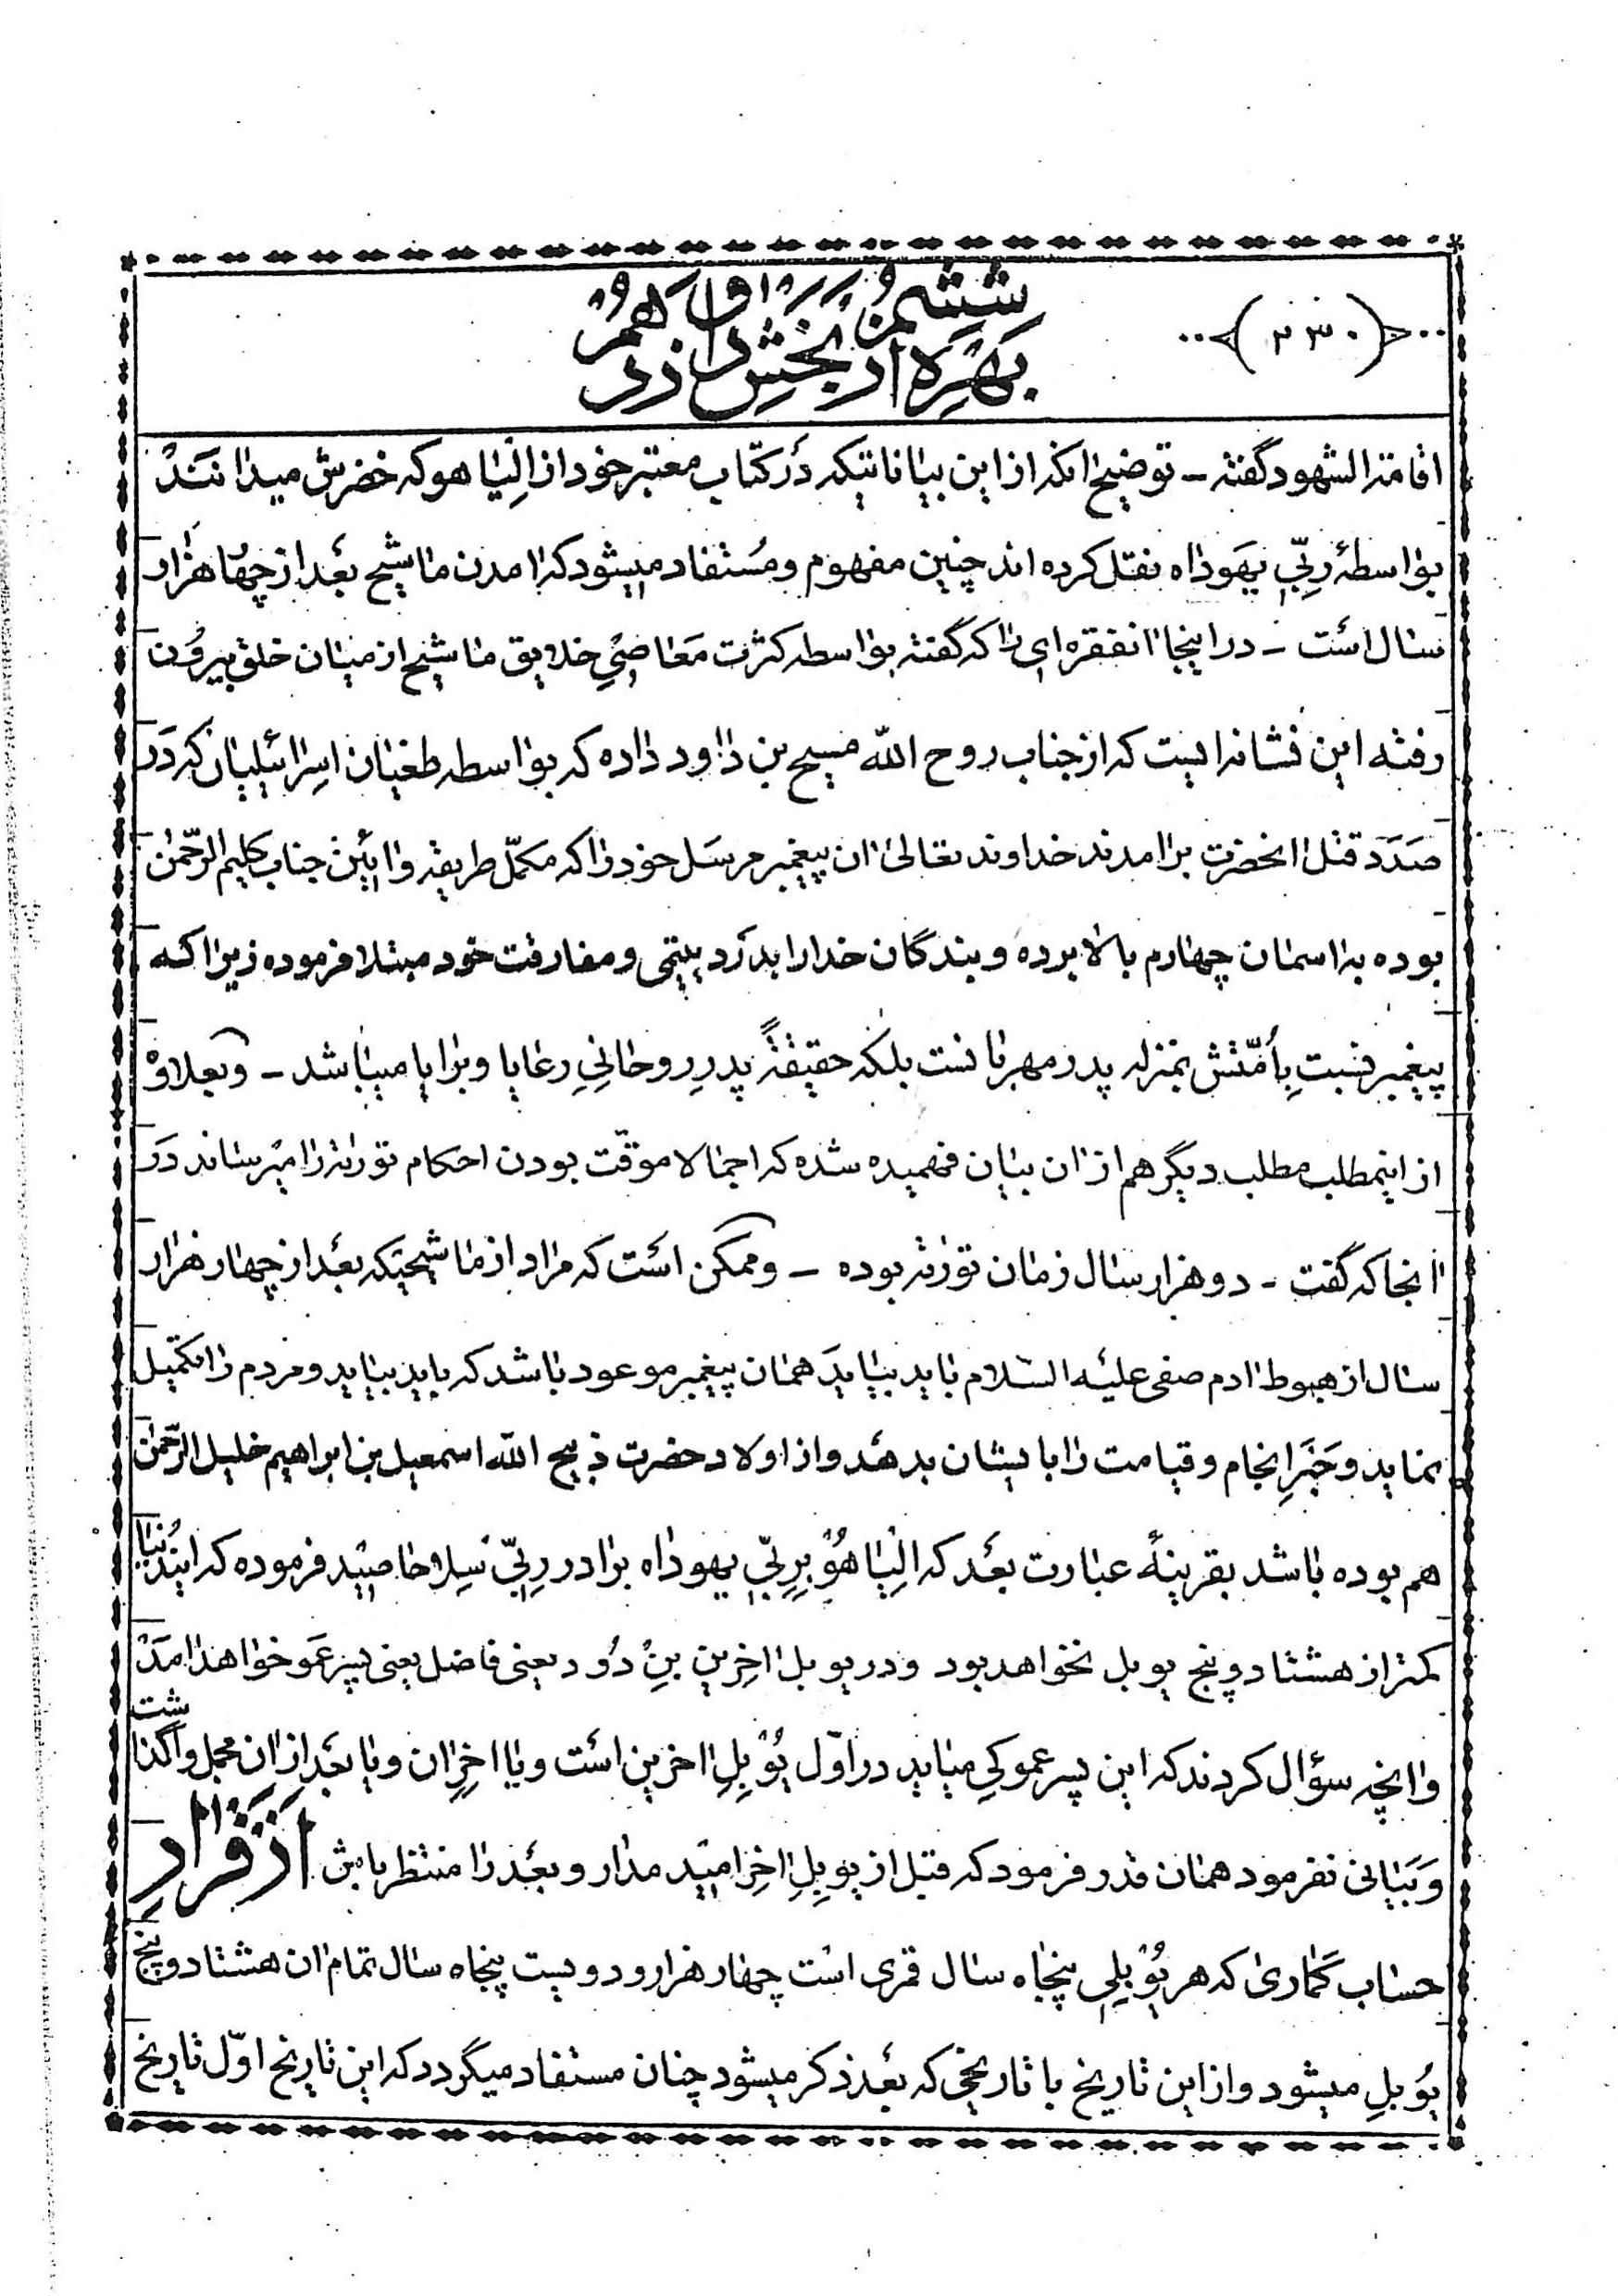 ﴿۲۳۰﴾
ششمن بهره از بخش دوازدهم
اقامة الشهود گفته ـ توضیح انکه از این بیاناتیکه در کتاب معتبر خود از الیاهو که خضرش میدانند
بواسطهٔ ربّیِ یهوداه نقل کرده اند چنین مفهوم و مستفاد میشود که امدن ماشیح بعد از چهار هزار
سال است ـ در اینجا انفقره‌ای را که گفته بواسطه کثرت معاصیِ خلایق ماشیح از میان خلق بیرون
رفته این نشانه ایست که از جناب روح الله مسیح بن داود داده که بواسطه طغیان اسرائیلیان که در
صدد قتل انحضرت برامدند خداوند تعالیٰ ان پیغمبر مرسل خود را که مکمّل طریقه وائین جناب کلیم الرّحمٰن
بوده به اسمان چهارم بالا برده و بندگان خدا را بدرد یتیمی و مفارقت خود مبتلا فرموده زیرا که
پیغمبر نسبت بِأمّتش بمنزله پدر مهربانست بلکه حقیقةً پدرِ روحانیِ رعایا و برایا میباشد ـ و بعلاوه
از اینمطلب مطلب دیگر هم از ان بیان فهمیده شده که اجمالا موقّت بودن احکام تورٰیة را میرساند در
انجا که گفت ـ دو هزار سال زمان تورٰیة بوده ـ و ممکن است که مراد از ماشیحیکه بعد از چهار هزار
سال از هبوط ادم صفی علیه السّلام باید بیاید همان پیغمبر موعود باشد که باید بیاید و مردم را تکمیل
نماید و خبرِ انجام و قیامت را بایشان بدهد و از اولاد حضرت ذبیح الله اسمعیل بن ابراهیم خلیل الرّحمٰن
هم بوده باشد بقرینهٔ عبارت بعد که الیاهو بربّیِ یهوداه برادر ربّیِ سلاو خاصید فرموده که ایندنیا
کمتر از هشتاد و پنج یوبل نخواهد بود و در یوبل اخرین بنِ دود یعنی فاضل یعنی پسر عمو خواهد امد
و انچه سؤال کردند که این پسر عمو کی میاید در اوّل یوبلِ اخرین است و یا اخرِ ان و یا بعد از ان مجمل واگذاشت
و بیانی نفرمود همان قدر فرمود که قبل از یوبلِ اخر امید مدار و بعد را منتظر باش از قرار
حساب گماری که هر یوبلی پنجاه سال قمری است چهار هزار و دویست پنجاه سال تمام ان هشتاد و پنج
یوبلِ میشود و از این تاریخ با تاریخی که بعد ذکر میشود چنان مستفاد میگردد که این تاریخ اوّل تاریخ